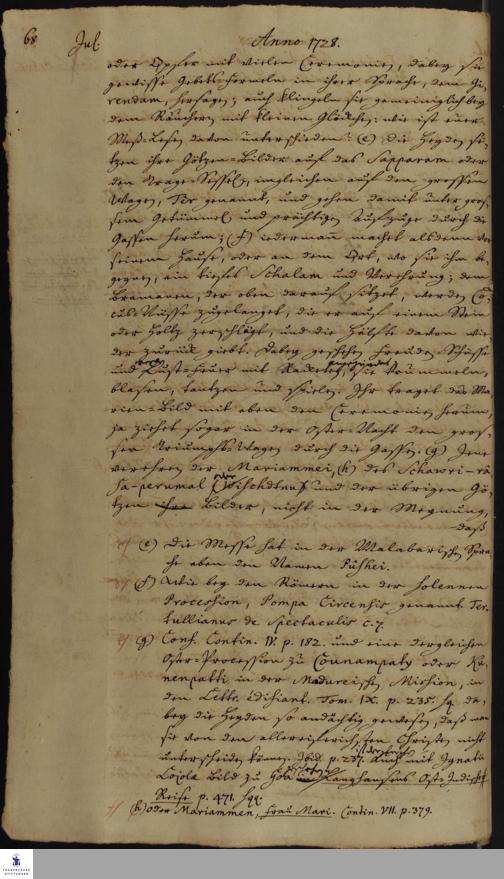 68 Jul. Anno 1728.
oder Opfer mit vielen Ceremonien, dabey sie
gewisse Gebets-Formeln in ihrer Sprache, dem
rendam, hersagen; auch klingeln sie gemeiniglich bey
dem Räuchern mit kleinen Glöckgen: wie ist euer
Meß-Lesen davon unterschieden? (e) die Heyden se-
tzen ihre Götzen-Bilder auf das Sapparam oder
den Trage-Sessel, imgleichen auf den grossen
Wagen, Ter genannt, und gehen damit unter gros-
sem Getümmel und prächtigen Aufzuge durch die
Gassen herum; (f) iederman machet alsdenn vor
seinem Hause, oder an dem Ort, wo sie ihm be-
gegnen, ein tiefes Schalam und Verehrung; dem
Bramanen, der oben darauf sitzet, werden Co-
cus-Nüsse zugelanget, die er auf einem Stein
oder Holtz zerschlägt, und die Hälfte davon wie-
der zurück giebt. Dabey geschehen Freuden-Schüsse
und Lust-Feuer mit Raketen, sie trummeln,
blasen, tantzen und spielen. Ihr traget das Ma-
rien-Bild mit eben den Ceremonien herum,
ja ziehet sogar in der Oster-Nacht den gros-
sen Triumphs-Wagen durch die Gassen. (g) Jene
verehren der Mariammei, (h) des Schawri-rá-
sa-perumal und der übrigen Gö-
tzen ihre Bilder, nicht in der Meynung,
daß
(e) Die Messe hat in der Malabarischen Spra-
che eben den Namen Púshei.
(f) Wie bey den Römern in der solennen
Procession, Pompa Circensis genannt. Ter-
tullianus de Spectaculis c. 7.
(g) Conf. Contin. IV. p. 182. und eine dergleichen
Oster-Procession zu Counampaty oder Kú-
nenpatti in der Madureischen Mission, in
den Lettr. edifiant. Tom. IX. p. 235. sq. da-
bey die Heyden so andächtig gewesen, daß man
sie von den allereifrigsten Christen nicht
unterscheiden können. Ibid. p. 237. Auch mit Ignatii
Lojola Bild zu Goa Langhansens Ost-Indische
Reise p. 471. sqq.
(h) oder Mariammen, Frau Mari. Contin. VII. p. 379.
FRANCKESCHE STIFTUNGEN